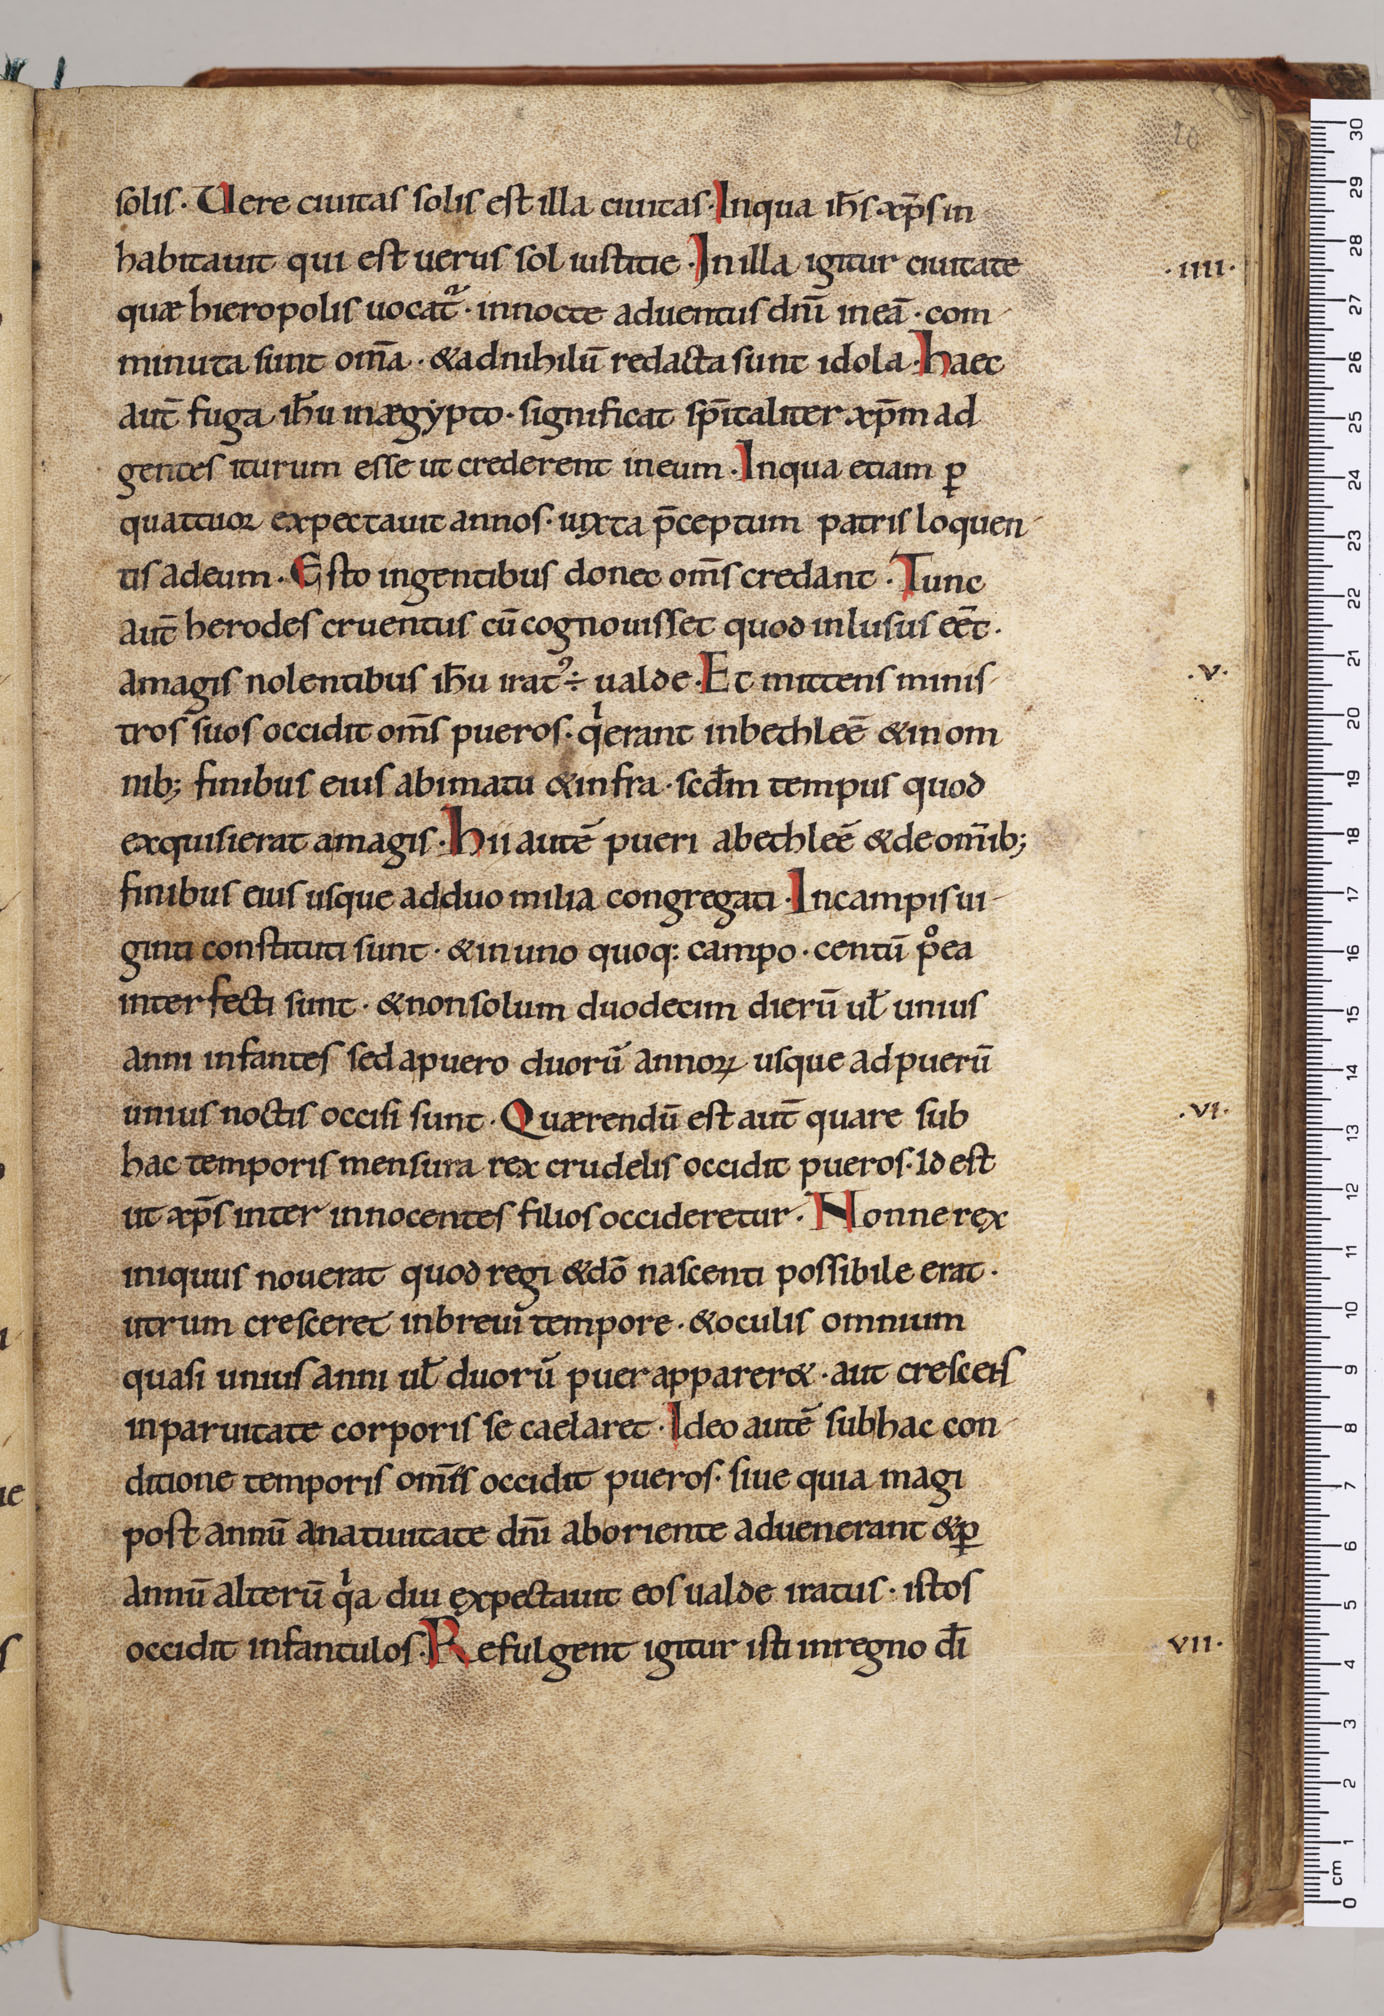 20
solis. Uere ciuitas solis est illa ciuitas. Inqua ih̅s xp̅s in
habitauit qui est uerus sol iustitie. Inilla igitur ciuitate ·IIII·
quæ hieropolis uocat᷑. innocte aduentus dn̅i ineā. com-
minuta sunt om̅a. &adnihilū redacta sunt idola. haec
aut̅ fuga ih̅u inægẏpto. significat sp̅italiter xp̅m ad
gentes iturum esse ut crederent ineum. Inqua etiam ꝑ
quattuor expectauit annos. iuxta p̅ceptum patris loquen-
tis adeum. Esto ingentibus donec om̅s credant. Tunc
aut̅ herodes cruentus cū cognouisset quod inlusus eēt.
amagis nolentibus ih̅u irat᷒ ÷ ualde. Et mittens minis- ·V·
tros suos occidit om̅s pueros. qͥerant inbethleē &inom
nib; finibus eius abimatu &infra. scd̅m tempus quod
exquisierat amagis. hii autē pueri abethleē &deom̅ib;
finibus eius usque adduo milia congregati. Incampis ui-
ginti constituti sunt. &inuno quoq: campo. centū p̊ea
interfecti sunt. &nonsolum duodecim dierū ul̅ unius
anni infantes sed apuero duorū annoꝝ usque adpuerū
unius noctis occisi sunt. Quærendū est aut̅ quare sub ·VI·
hac temporis mensura rex crudelis occidit pueros. Id est
ut xp̅s inter innocentes filios occideretur. Nonne rex
iniquus nouerat quod regi &dō nascenti possibile erat.
utrum cresceret inbreui tempore. &oculis omnium
quasi unius anni ul̅ duorū puer apparer&. aut crescens
inparuitate corporis se caelaret. Ideo autē subhac con-
ditione temporis om̅is occidit pueros. siue quia magi
post annū anatiuitate dn̅i aboriente aduenerant &ꝑ
annū alterū qͥa diu expectauit eos ualde iratus. istos
occidit infantulos. Refulgent igitur isti inregno di̅ VII·